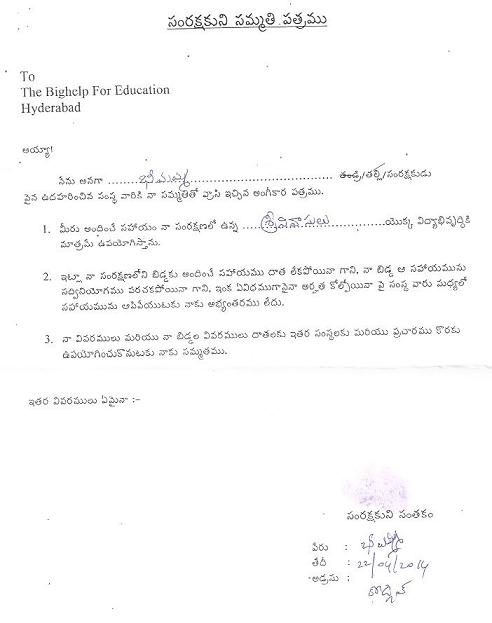 సంరక్షకుని సమ్మతి పత్రము
To
The Bighelp For Education
Hyderabad
అయ్యా!
నేను అనగా ..........భీమమ్మ.......... తండ్రి/తల్లి/సంరక్షకుడు
పైన ఉదహరించిన సంస్థ వారికి నా సమ్మతితో వ్రాసి ఇచ్చిన అంగీకార పత్రము.
1. మీరు అందించే సహాయం నా సంరక్షణలో ఉన్న ....శ్రీనివాసులు..........యొక్క విద్యాభివృద్ధికి
మాత్రమే ఉపయోగిస్తాను.
2. ఇట్లా నా సంరక్షణలోని బిడ్డకు అందించే సహాయము దాత లేకపోయినా గాని, నా బిడ్డ ఆ సహాయమును
సద్వినియోగము పరచకపోయినా గాని, ఇంక ఏవిధముగానైనా అర్హత కోల్పోయినా పై సంస్థ వారు మధ్యలో
సహాయమును ఆపివేయుటకు నాకు అభ్యంతరము లేదు.
3. నా వివరములు మరియు నా బిడ్డల వివరములు దాతలకు ఇతర సంస్థలకు మరియు ప్రచారము కొరకు
ఉపయోగించుకొనుటకు నాకు సమ్మతము.
ఇతర వివరములు ఏమైనా :-
సంరక్షకుని సంతకం
పేరు : భీమమ్మ
తేదీ : 22/04/2014
అడ్రసు :